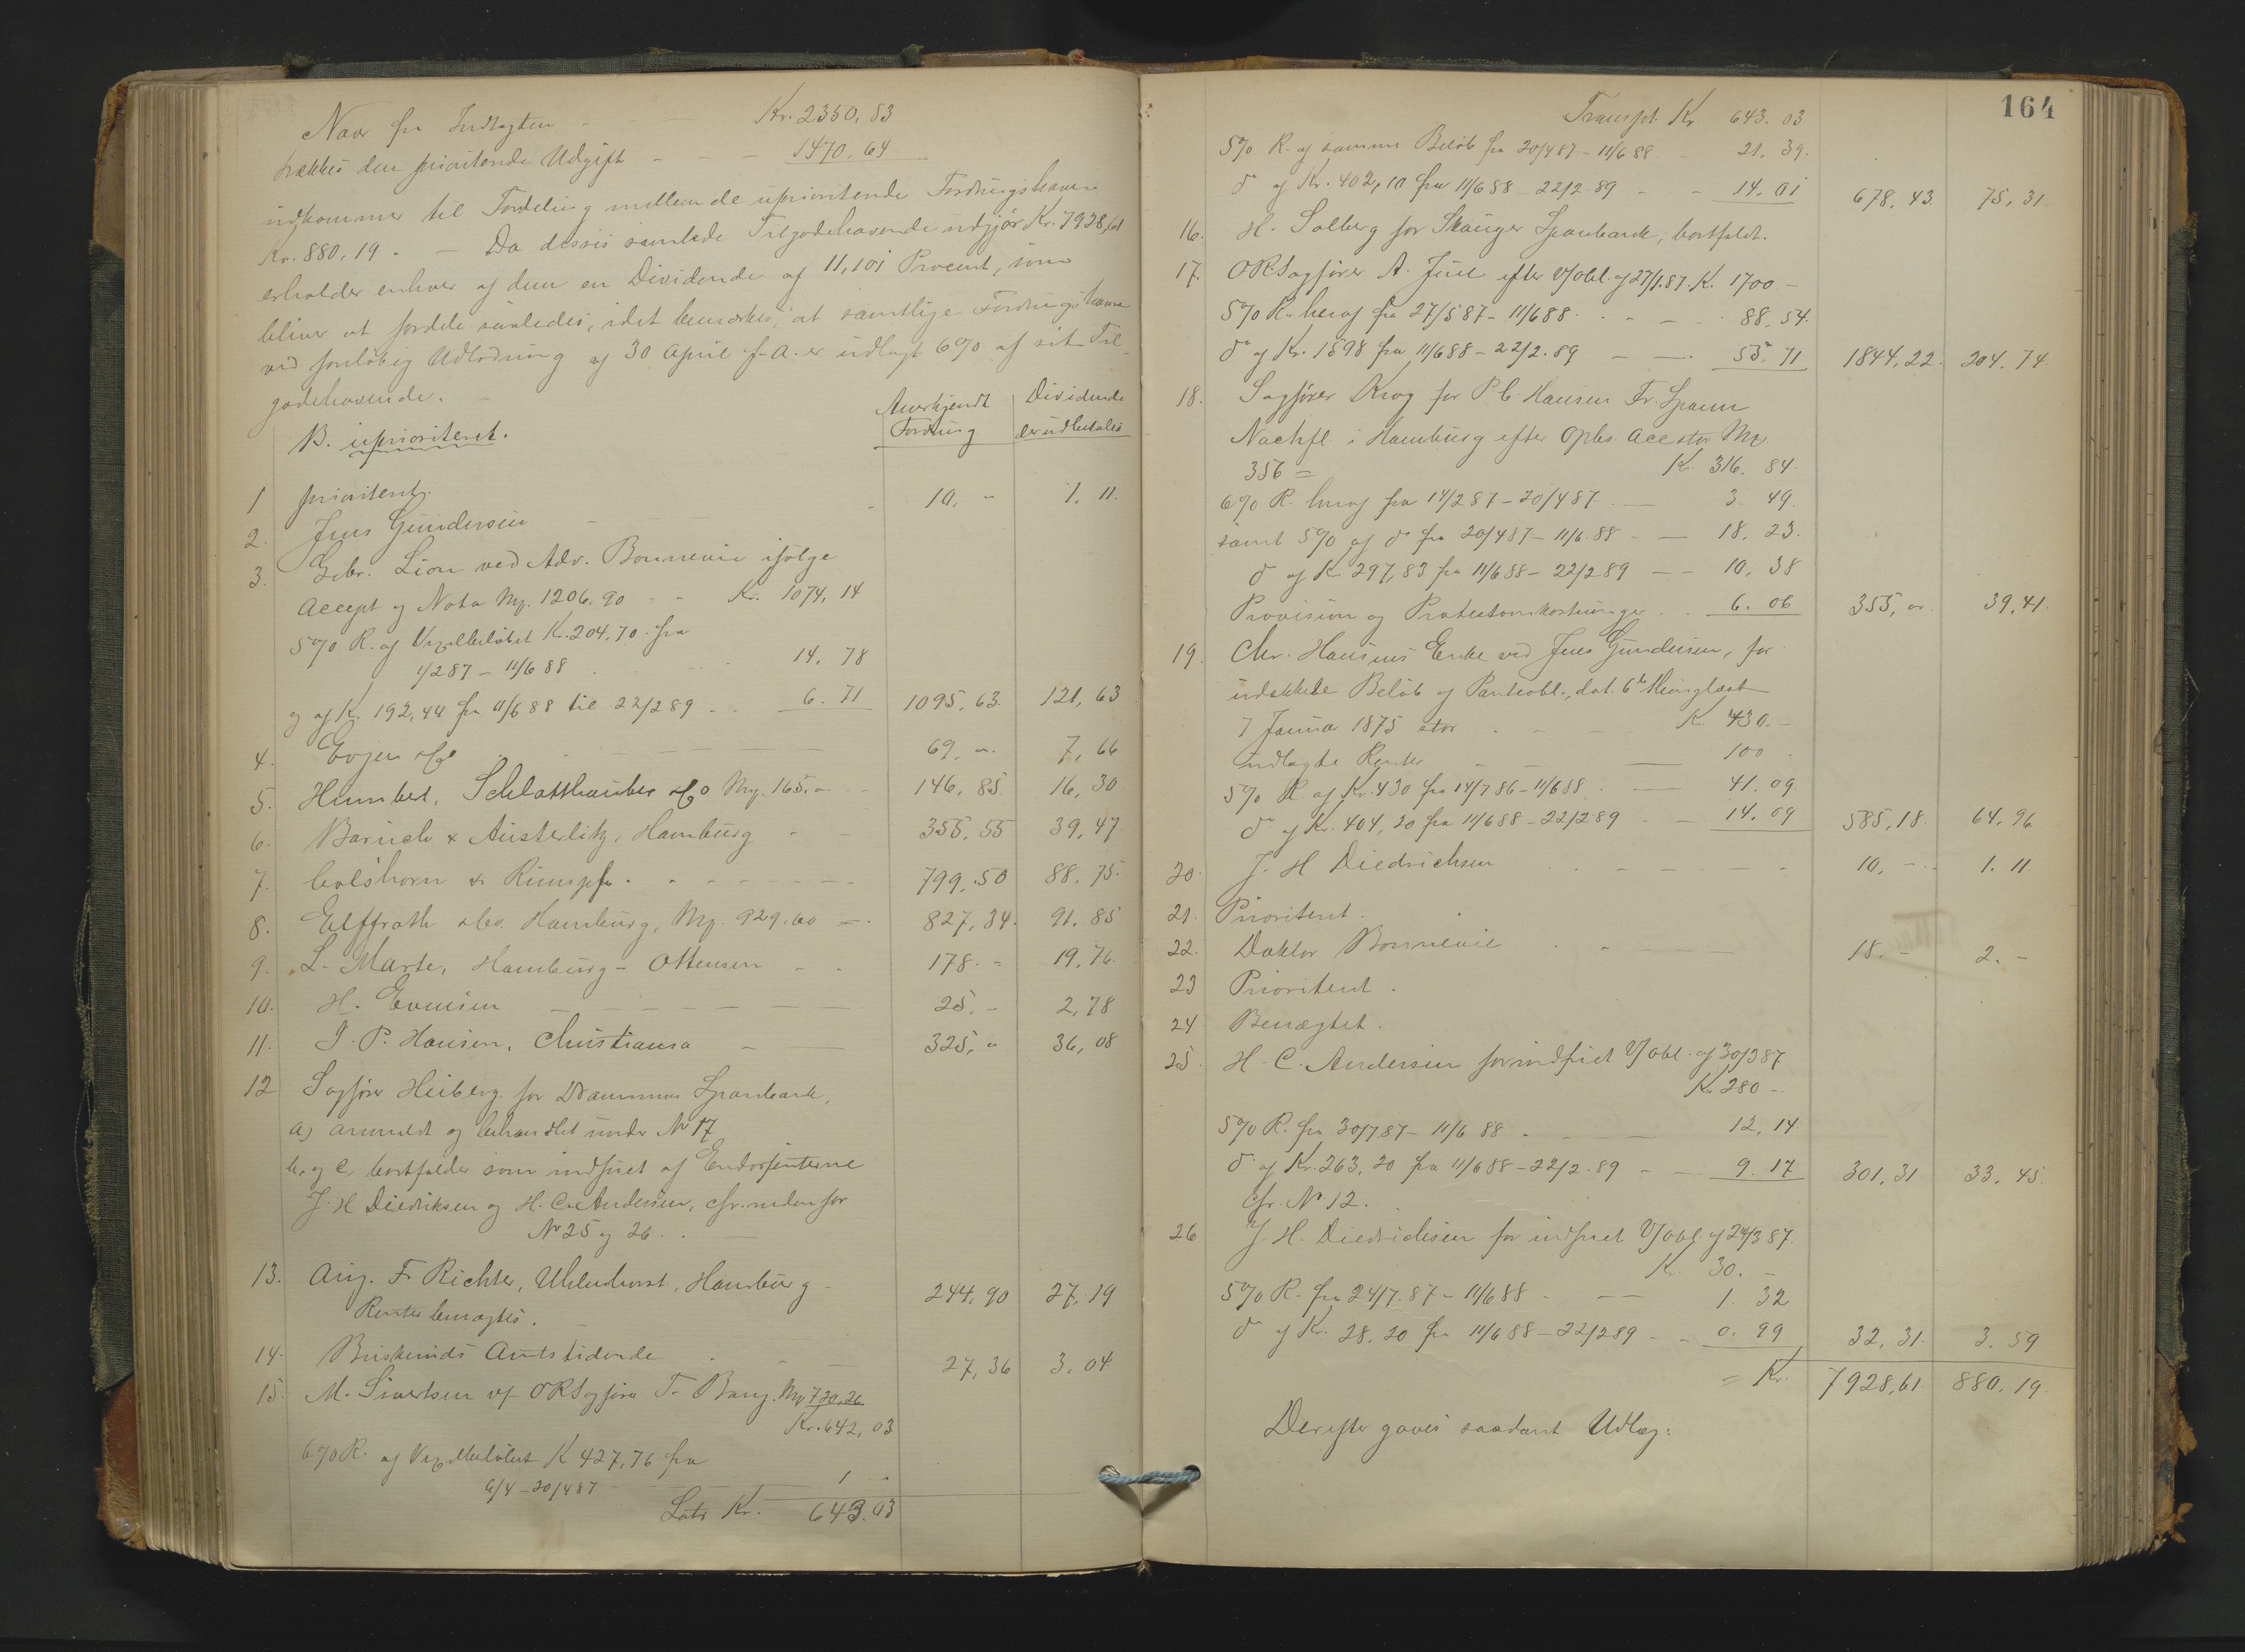 Naar fra Indtægten - Kr. 2350,83
trækkes den prioriterede Udgift - - - 1470,64
udkommer til Fordeling mellem de uprioriterede Fordringshavere
Kr. 880,19. - Da disses samlede Tilgodehavende udgjør Kr. 7928,61
erholder enhver af dem en Dividende af 11,101 Procent, som
bliver at fordele saaledes, idet bemærkes, at samtlige Fordringshavere
ved foreløbig Udlodning af 30 April f. A. er udlagt 6% af sit Til-
godehavende. -
B. uprioriteret.
Anerkjendt Fordring
Dividende der udbetales
1 prioriteret.
2. Jens Gundersen - 10. - 1. 11.
3. Gebr. Lion ved Adv. Bonnevie ifølge
Accept og Nota Mp. 1206.90 - - Kr. 1074,14
5% R. af Vexelbeløbet Kr. 204,70 fra
1/2 87 - 11/6 88 14. 78
og af K. 192,44 fra 11/6 88 til 22/2 89 - - 6. 71 1095,63. 121,63
4. Evjen & Co 69. " 7,66
5. Humbert, Schlatthauber & Co Mp. 165. " - 146,85. 16,30
6. Baruch & Austerlitz, Hamburg - - 355,55 39,47.
7. Colshorn & Rumpf. - - - 799,50 88,75.
8. Elffroth & Co. Hamburg, Mp. 929.60 - 827,34. 91,85
9. L. Marte, Hamburg - Ottensen - - 178. - 19,76
10. H. Evensen - - - 25. - 2,78
11. J. P. Hansen, Christiania - 325, " 36,08
12 Sagfører Heiberg for Drammens Sparebank,
a) anmeldt og behandlet under No 17
b. og c, bortfalder som indfriet af Endossenterne
J. H Diedriksen og H. C. Andersen, cfr. nedenfor
No 25 og 26.
13. Aug. F. Richter, Uhlenhorst, Hamburg - 244,90 27,19
Renter benægtes.
14. Buskeruds Amtstidende 27,36 3,04
15. M. Sivertsen v/ ORSagfører F. Bang. Mp 720,26
Kr. 642,03
6% R. af Vexelbeløbet K 427,76 fra
6/4 - 20/4 87 - 1 "
Lats Kr. 643.03
164
Transpt. Kr 643. 03
5% R. af samme Beløb fra 20/4 87 - 11/6 88 - 21. 39.
do af Kr. 402,10 fra 11/6 88 - 22/2 89 - - 14. 01 678,43. 75,31.
16. H. Solberg for Skauger Sparebank, bortfaldt.
17. ORSagfører A. Juel efter V/obl. af 27/1. 87. K. 1700 -
5% R. heraf fra 27/5 87 - 11/6 88. - - 88,54.
do af Kr. 1598 fra 11/6 88 - 22/2. 89 - - 55. 71 1844,22. 204. 74.
18. Sagfører Krog for P. C. Hansen Fr. Spann
Nachfl. i Hamburg efter Opbr. Acc stor Mp
356 = K. 316. 84.
6% R. heraf fra 14/2 87 - 20/4 87 - 3. 49.
samt 5% af do fra 20/4 87 - 11/6 88 - - 18. 23.
do af K. 297,83 fra 11/6 88 - 22/2 89 - - 10. 38
Provision og Protestomkostninger - 6. 06 355, " 39,41.
19. Chr. Hansens Enke ved Jens Gundersen, for
udækkede Beløb af Panteobl., dat. 6te thinglæst
7 Janua 1875 stor - K. 430. -
udlagte Renter - - 100
5% R. af Kr. 430 fra 14/7 86 - 11/6 88. - 41. 09.
do af Kr. 404,20 fra 11/6 88 - 22/2 89 - 14. 09 585,18. 64,96
20. J. H Diedrichsen - - - 10. - 1. 11
21. Prioriteret.
22. Doktor Bonnevie - - 18. - 2. -
23 Prioriteret.
24 Benægtet.
25. H. C. Andersen for indfriet V/obl. af 30/3 87
K. 280 -
5% R. fra 30/7 87 - 11/6 88 - - 12,14.
do af Kr. 263,20 fra 11/6 88 - 22/2. 89 - - 9. 17 301,31 33,45.
cfr. No 12.
26 J. H. Diedrichsen for indfriet V/obl. af 24/3 87.
K. 30. -
5% R. fra 24/7. 87 - 11/6 88 - - 1. 32
do af Kr. 28,20 fra 11/6 88 - 22/2 89 - - 0. 99 32,31. 3,59
= Kr. 7928,61. 880,19.
Derefter gaves saadant Udlæg: